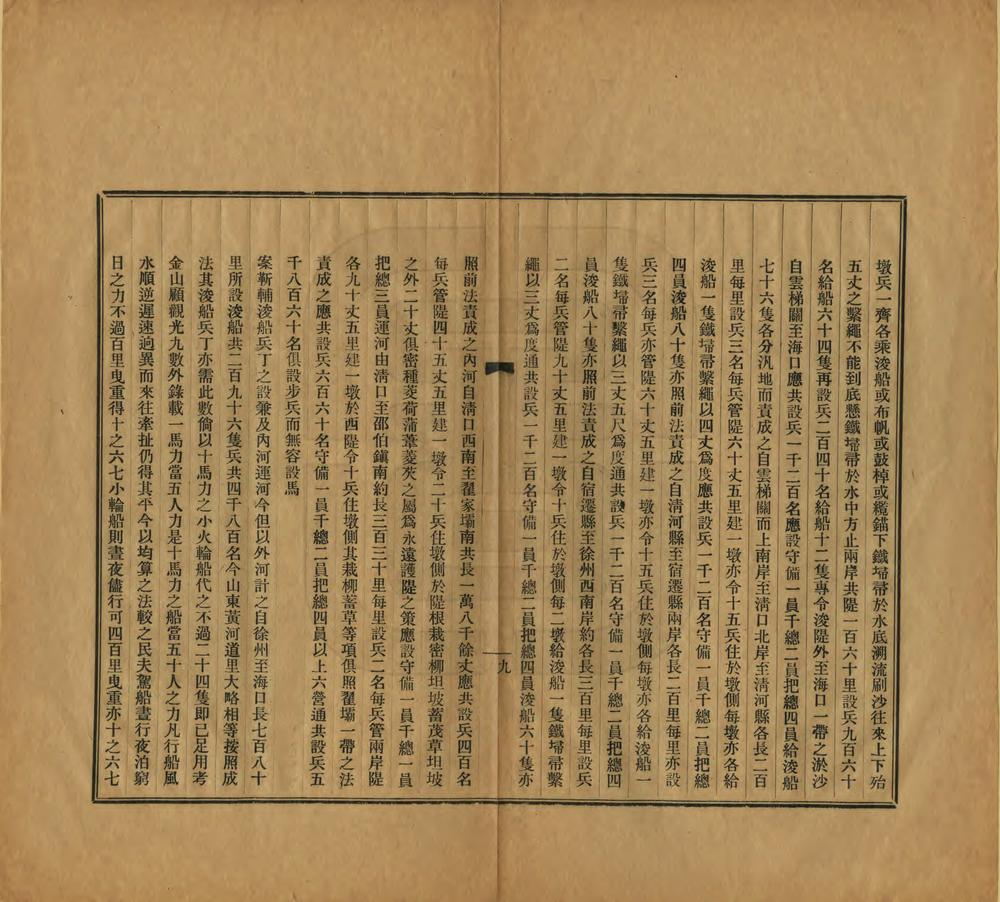 墩兵一齊各乘浚船或布帆或鼓棹或纜錨下鐵埽帚於水底溯流刷沙往來上下殆
五丈之繫繩不能到底懸鐵埽帚於水中方止兩岸共隄一百六十里設兵九百六十
名給船六十四隻再設兵二百四十名給船十二隻專令浚隄外至海口一帶之淤沙
自雲梯關至海口應共設兵一千二百名應設守備一員千總二員把總四員給浚船
七十六隻各分汛地而責成之自雲梯關而上南岸至淸口北岸至淸河縣各長二百
里每里設兵三名每兵管隄六十丈五里建一墩亦令十五兵住於墩側每墩亦各給
浚船一隻鐵埽帚繫繩以四丈爲度應共設兵一千二百名守備一員千總二員把總
四員浚船八十隻亦照前法責成之自淸河縣至宿遷縣兩岸各長二百里每里亦設
兵三名每兵亦管隄六十丈五里建一墩亦令十五兵住於墩側每墩亦各給浚船一
隻鐵埽帚繫繩以三丈五尺爲度通共設兵一千二百名守備一員千總二員把總四
員浚船八十隻亦照前法責成之自宿遷縣至徐州西南岸約各長三百里每里設兵
二名每兵管隄九十丈五里建一墩令十兵住於墩側每二墩給浚船一隻鐵埽帚繫
繩以三丈爲度通共設兵一千二百名守備一員千總二員把總四員浚船六十隻亦
九
照前法責成之內河自淸口西南至翟家壩南共長一萬八千餘丈應共設兵四百名
每兵管隄四十五丈五里建一墩令二十兵住墩側於隄根栽密柳坦坡蓄茂草坦坡
之外二十丈俱密種菱荷蒲葦菱芡之屬爲永遠護隄之策應設守備一員千總一員
把總三員運河由淸口至邵伯鎭南約長三百三十里每里設兵二名每兵管兩岸隄
各九十丈五里建一墩於西隄令十兵住墩側其栽柳蓄草等項俱照翟壩一帶之法
責成之應共設兵六百六十名守備一員千總二員把總四員以上六營通共設兵五
千八百六十名俱設步兵而無容設馬
案靳輔浚船兵丁之設兼及內河運河今但以外河計之自徐州至海口長七百八十
里所設浚船共二百九十六隻兵共四千八百名今山東黃河道里大略相等按照成
法其浚船兵丁亦需此數倘以十馬力之小火輪船代之不過二十四隻卽已足用考
金山顧觀光九數外錄載一馬力當五人力是十馬力之船當五十人之力凡行船風
水順逆遲速逈異而來往牽扯仍得其平今以均算之法較之民夫駕船晝行夜泊窮
日之力不過百里曳重得十之六七小輪船則晝夜儘行可四百里曳重亦十之六七